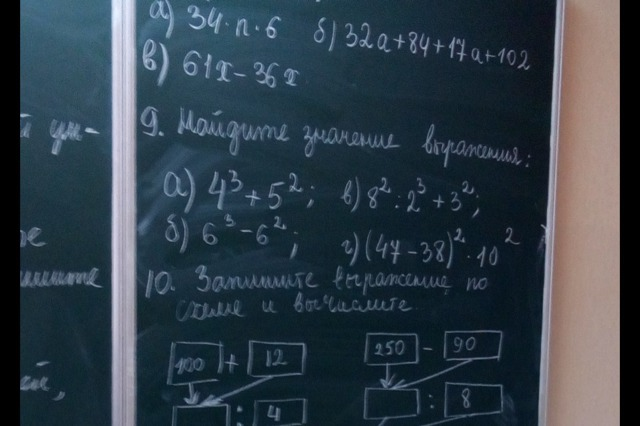 а) 34·n·6 б) 32a+84+17a+102
в) 61x-36x
9. Найдите значение выражения:
а) 4³+5²; в) 8²:2³+3²;
б) 6³-6²; г) (47-38)²·10²
10. Запишите выражение по
схеме и вычислите.
100 + 12 250 - 90
: 4 : 8